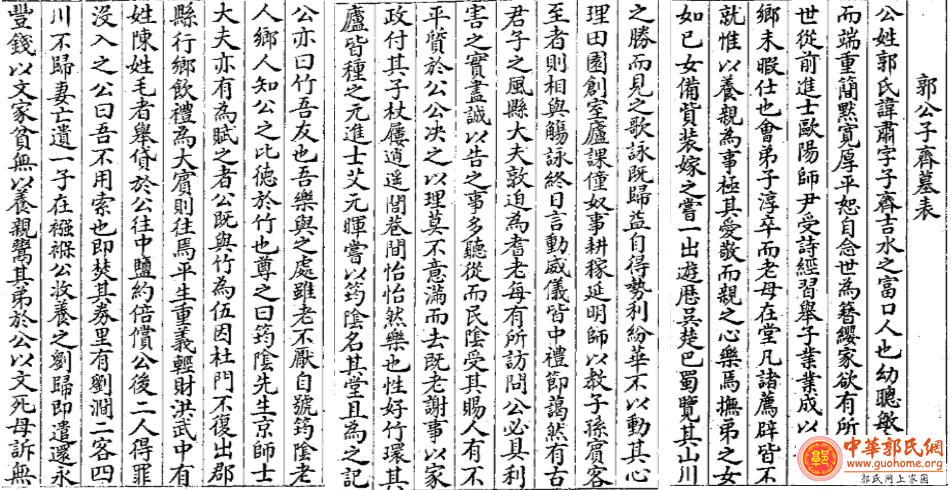 郭公子齊墓表
公姓郭氏諱肅字子齊吉水之富口人也幼聰敏
而端重簡黙寬厚平恕自念世為簪纓家欲有所
世從前進士歐陽師尹受詩經習舉子業業成以
鄉未暇仕也會弟子淳卒而老母在堂凡諸薦辟皆不
就惟以養親為事極其愛敬而親之心樂焉撫弟之女
如已女備貲裝嫁之嘗一出遊歴吳楚巴蜀覽其山川
之勝而見之歌詠既歸益自得勢利紛華不以動其心
理田園創室廬課僮奴事耕稼延明師以教子孫賓客
至者則相與觴詠終日言動威儀皆中禮節藹然有古
君子之風縣大夫敦迫為耆老每有所訪問公必具利
害之實盡誠以告之事多聽從而民陰受其賜人有不
平質於公公决之以理莫不意滿而去既老謝事以家
政付其子杖屨逍遥閭巷間怡怡然樂也性好竹環其
廬皆種之元進士艾元暉嘗以筠陰名其堂且為之記
公亦曰竹吾友也吾樂與之處雖老不厭自號筠陰老
人鄉人知公之比德於竹也尊之曰筠陰先生京師士
大夫亦有為賦之者公既與竹為伍因杜門不復出郡
縣行鄉飲禮為大賓則往焉平生重義輕財洪武中有
姓陳姓毛者舉貸於公往中鹽約倍償公後二人得罪
沒入之公曰吾不用索也即焚其券里有劉澗二客四
川不歸妻亡遺一子在襁褓公收養之劉歸即遣還永
豐錢以文家貧無以養親鬻其弟於公以文死母訴無
中華郭氏網
www.guohome.org
郭氏网上家園